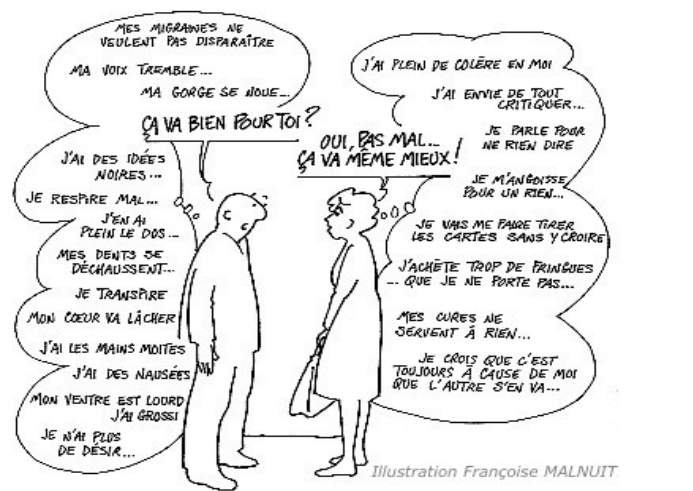 MES MIGRAINES NE
VEULENT PAS DISPARAÎTRE
MA VOIX TREMBLE...
MA GORGE SE NOUE...
ÇA VA BIEN POUR TOI ?
J'AI DES IDÉES
NOIRES...
JE RESPIRE MAL...
J'EN AI
PLEIN LE DOS...
MES DENTS SE
DÉCHAUSSENT...
JE TRANSPIRE
MON CŒUR VA LÂCHER
J'AI LES MAINS MOITES
J'AI DES NAUSÉES
MON VENTRE EST LOURD
J'AI GROSSI
JE N'AI PLUS
DE DÉSIR...
J'AI PLEIN DE COLÈRE EN MOI
J'AI ENVIE DE TOUT
CRITIQUER...
JE PARLE POUR
NE RIEN DIRE
OUI, PAS MAL...
ÇA VA MÊME MIEUX !
JE M'ANGOISSE
POUR UN RIEN...
JE VAIS ME FAIRE TIRER
LES CARTES SANS Y CROIRE
J'ACHÈTE TROP DE FRINGUES
... QUE JE NE PORTE PAS...
MES CURES NE
SERVENT À RIEN...
JE CROIS QUE C'EST
TOUJOURS À CAUSE DE MOI
QUE L'AUTRE S'EN VA...
Illustration Françoise MALNUIT